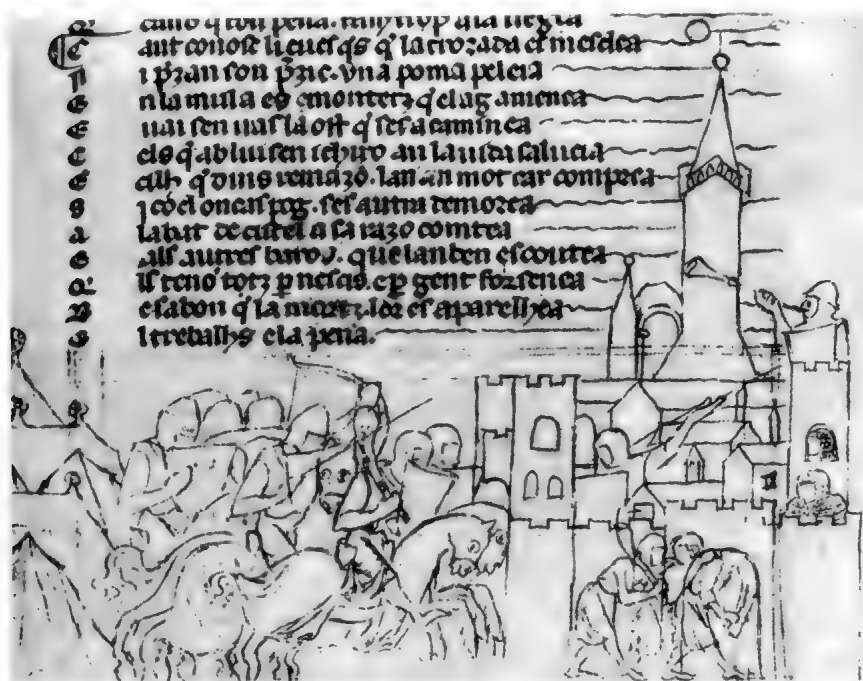 C ant conosc li eues q̄s q̄ la crozada es mesclea
N i p̄zan son p̄zic. vna poma peleia
E n la mula es e montetz q̄ el ag amenea
E uai sen uas la ost q̄ ses acaminea
C els q̄ ab lui sen ichiro an la uida saluea
E cilh q̄ dins remazō. lan an mot car compṙea
S i cō el oncas pog. ses autra demorea
a labat de cistel a sa razo comtea
a als autres baros. que lan ben escoutea
Q̄ ilh tenō totz p̄ nescis. e p̄ gent forsenea
B e sabon q̄ la mortz lor es aparelhea
E l trebalhs e la pena.